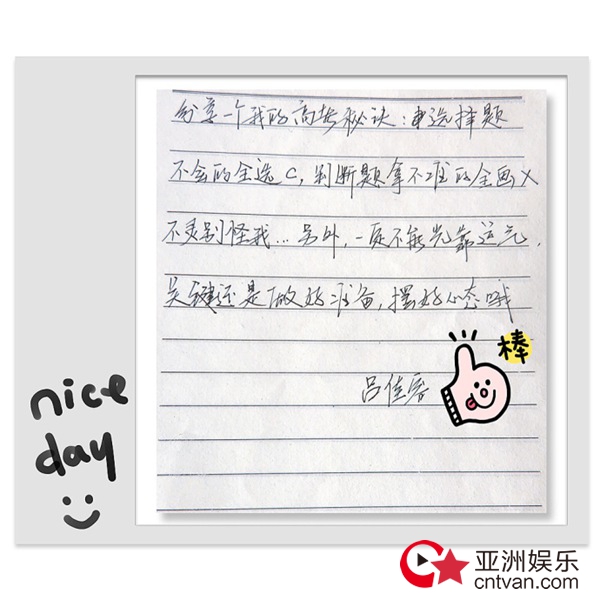 分享一个我的高考秘诀：选择题
不会的全选C，判断题拿不准的全画X
不灵别怪我...另外，一定不能光靠运气，
关键还是做好准备，摆好心态哦
吕佳容
棒
nice
day
亚洲娱乐
cntvan.com